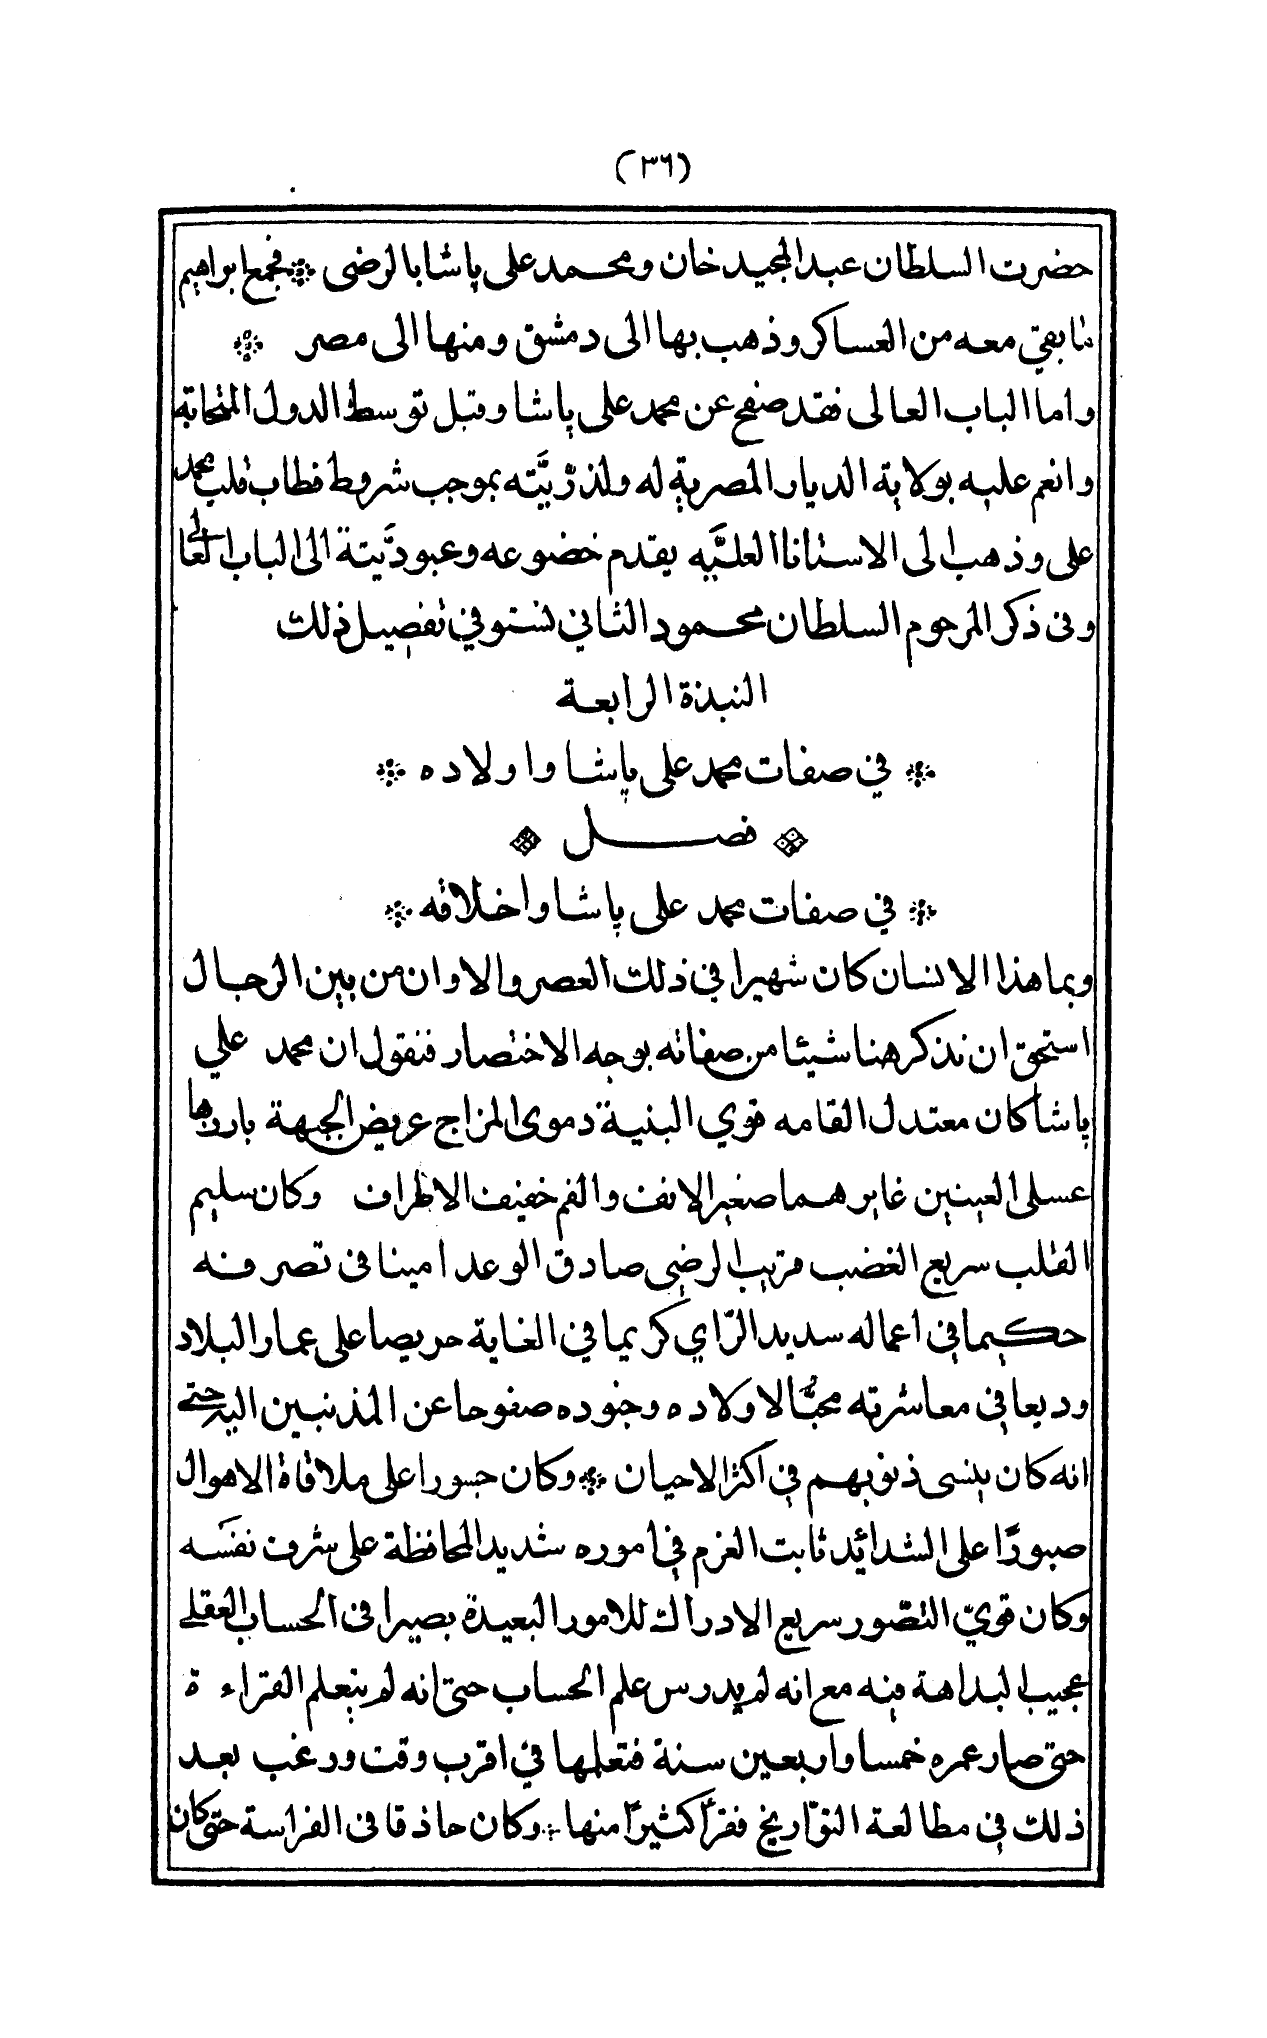 (٣٦)
حضرت السلطان عبد المجيد خان ومحمد على پاشا بالرضى * فجمع ابراهيم
ما بقي معه من العساكر وذهب بها الى دمشق ومنها الى مصر *
واما الباب العالى فقد صفح عن محمد على پاشا وقبل توسط الدول المتحابة
وانعم عليه بولاية الديار المصرية له ولذرّيَّته بموجب شروط فطاب قلب محمد
على وذهب الى الاستانا العليَّيه يقدم خضوعه وعبوديَّيتة الى الباب العالى
وفى ذكر المرحوم السلطان محمود الثاني نستوفي تفصيل ذلك
النبذة الرابعة
* في صفات محمد على پاشا واولاده *
* فصل *
* في صفات محمد على پاشا واخلاقه *
وبما هذا الانسان كان شهيرا في ذلك العصر والاوان من بين الرجال
استحق ان نذكر هنا شيئا من صفاته بوجه الاختصار فنقول ان محمد علي
پاشا كان معتدل القامه قوي البنية دموى المزاج عريض الجبهة بارزها
عسلى العينين غايرهما صغير الانف والفم خفيف الاطراف وكان سليم
القلب سريع الغضب قريب الرضى صادق الوعد امينا فى تصرفه
حكيما في اعماله سديد الرّاي كريما في الغاية حريصا على عمار البلاد
وديعا في معاشرته محبًّا لاولاده وجنوده صفوحا عن المذنبين اليه حتى
انه كان ينسى ذنوبهم في اكثر الاحيان * وكان جسورا على ملاقاة الاهوال
صبورًا على الشدائد ثابت العزم في اموره شديد المحافظة على شرف نفسه
وكان قويّ التصّور سريع الادراك للامور البعيدة بصيرا فى الحساب العقلى
عجيب البداهة فيه مع انه لم يدرس علم الحساب حتى انه لم يتعلم القراءة
حتى صار عمره خمسا واربعين سنة فتعلمها في اقرب وقت ورغب بعد
ذلك في مطالعة التوّاريخ فقرأ كثيرًا منها * وكان حاذقا فى الفراسة حتى كان